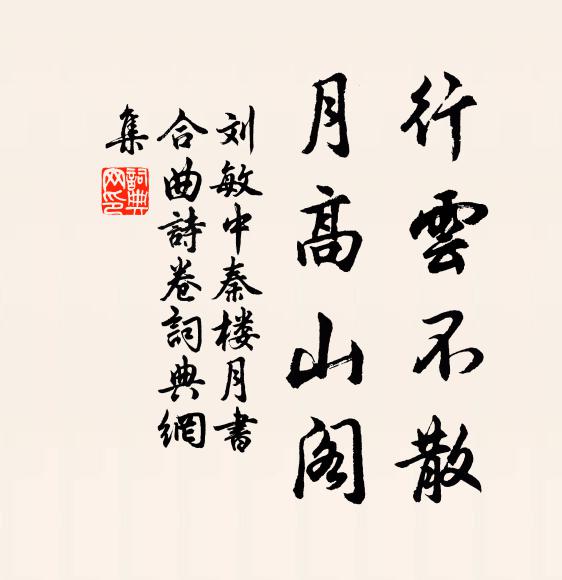 行雲不散
月高山阁
刘敏中秦楼月書
合曲詩卷詞典網
集
詞典網印